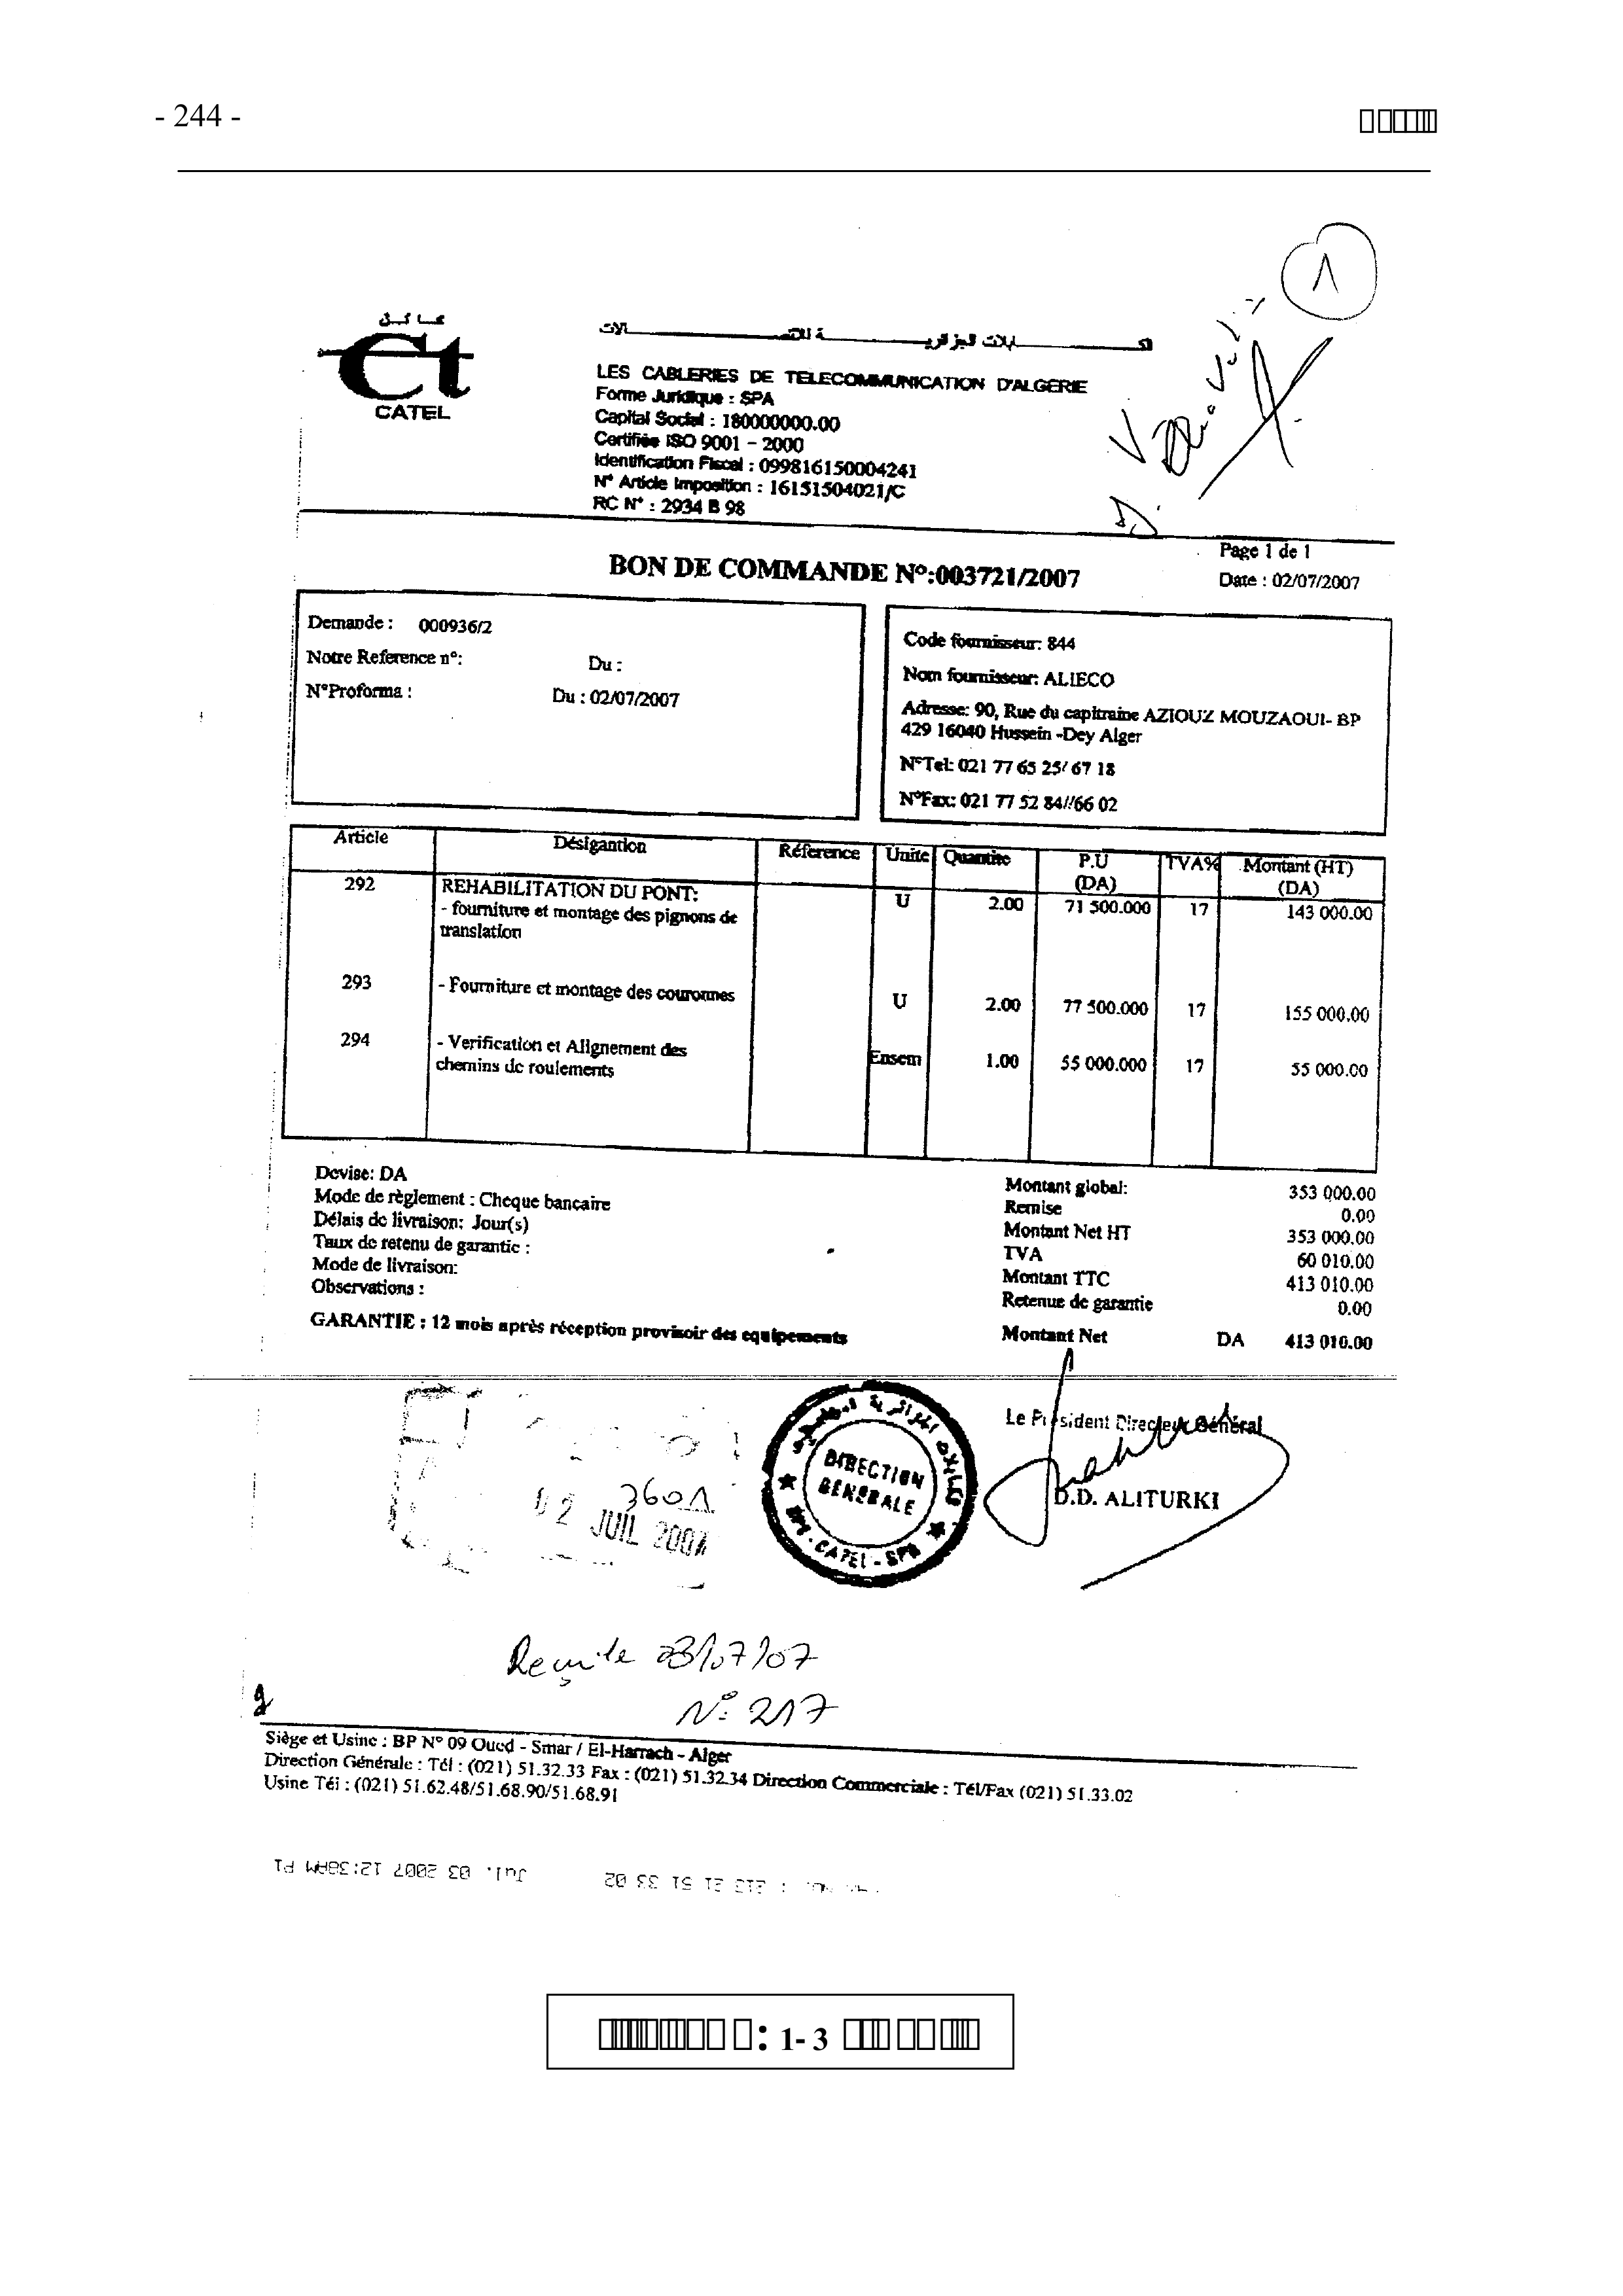 - 244 -
Ct
CATEL
LES CABLERIES DE TELECOMMUNICATION D'ALGERIE
Forme Juridique : SPA
Capital Social : 180000000.00
Certifiée ISO 9001 - 2000
Identification Fiscal : 099816150004241
N° Article Imposition : 16151504021/C
RC N° : 2934 B 98
1
Page 1 de 1
BON DE COMMANDE N°:003721/2007
Date : 02/07/2007
Demande : 000936/2
Notre Reference n°: Du :
N°Proforma : Du : 02/07/2007
Code fournisseur: 844
Nom fournisseur: ALIECO
Adresse: 90, Rue du capitraine AZIOUZ MOUZAOUI- BP
429 16040 Hussein -Dey Alger
N°Tel: 021 77 65 25/ 67 18
N°Fax: 021 77 52 84//66 02
Article Désigantion Réference Unite Quantite P.U (DA) TVA% Montant (HT) (DA)
292 REHABILITATION DU PONT:
- fourniture et montage des pignons de U 2.00 71 500.000 17 143 000.00
translation
293 - Fourniture et montage des couronnes U 2.00 77 500.000 17 155 000.00
294 - Verification et Alignement des Ensem 1.00 55 000.000 17 55 000.00
chemins de roulements
Devise: DA
Mode de règlement : Cheque bancaire
Délais de livraison: Jour(s)
Taux de retenu de garantie :
Mode de livraison:
Observations :
GARANTIE : 12 mois après réception provisoir des equipements
Montant global: 353 000.00
Remise 0.00
Montant Net HT 353 000.00
TVA 60 010.00
Montant TTC 413 010.00
Retenue de garantie 0.00
Montant Net DA 413 010.00
Le Président Directeur Général
D.D. ALITURKI
DIRECTION
GENERALE
CATEL - SPA
3601
02 JUIL 2007
Reçu le 03/07/07
N° 217
Siège et Usine : BP N° 09 Oued - Smar / El-Harrach - Alger
Direction Générale : Tél : (021) 51.32.33 Fax : (021) 51.32.34 Direction Commerciale : Tél/Fax (021) 51.33.02
Usine Tél : (021) 51.62.48/51.68.90/51.68.91
Jul. 03 2007 12:38AM P1
: 213 21 51 33 02
: 1- 3